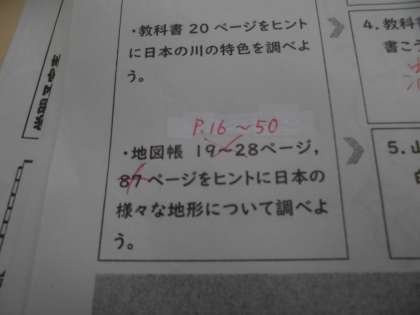 ・教科書 20 ページをヒント
に日本の川の特色を調べよ
う。
P.16～50
・地図帳 19～28ページ，
87ページをヒントに日本の
様々な地形について調べよ
う。
4. 教科
書こ
5. 山